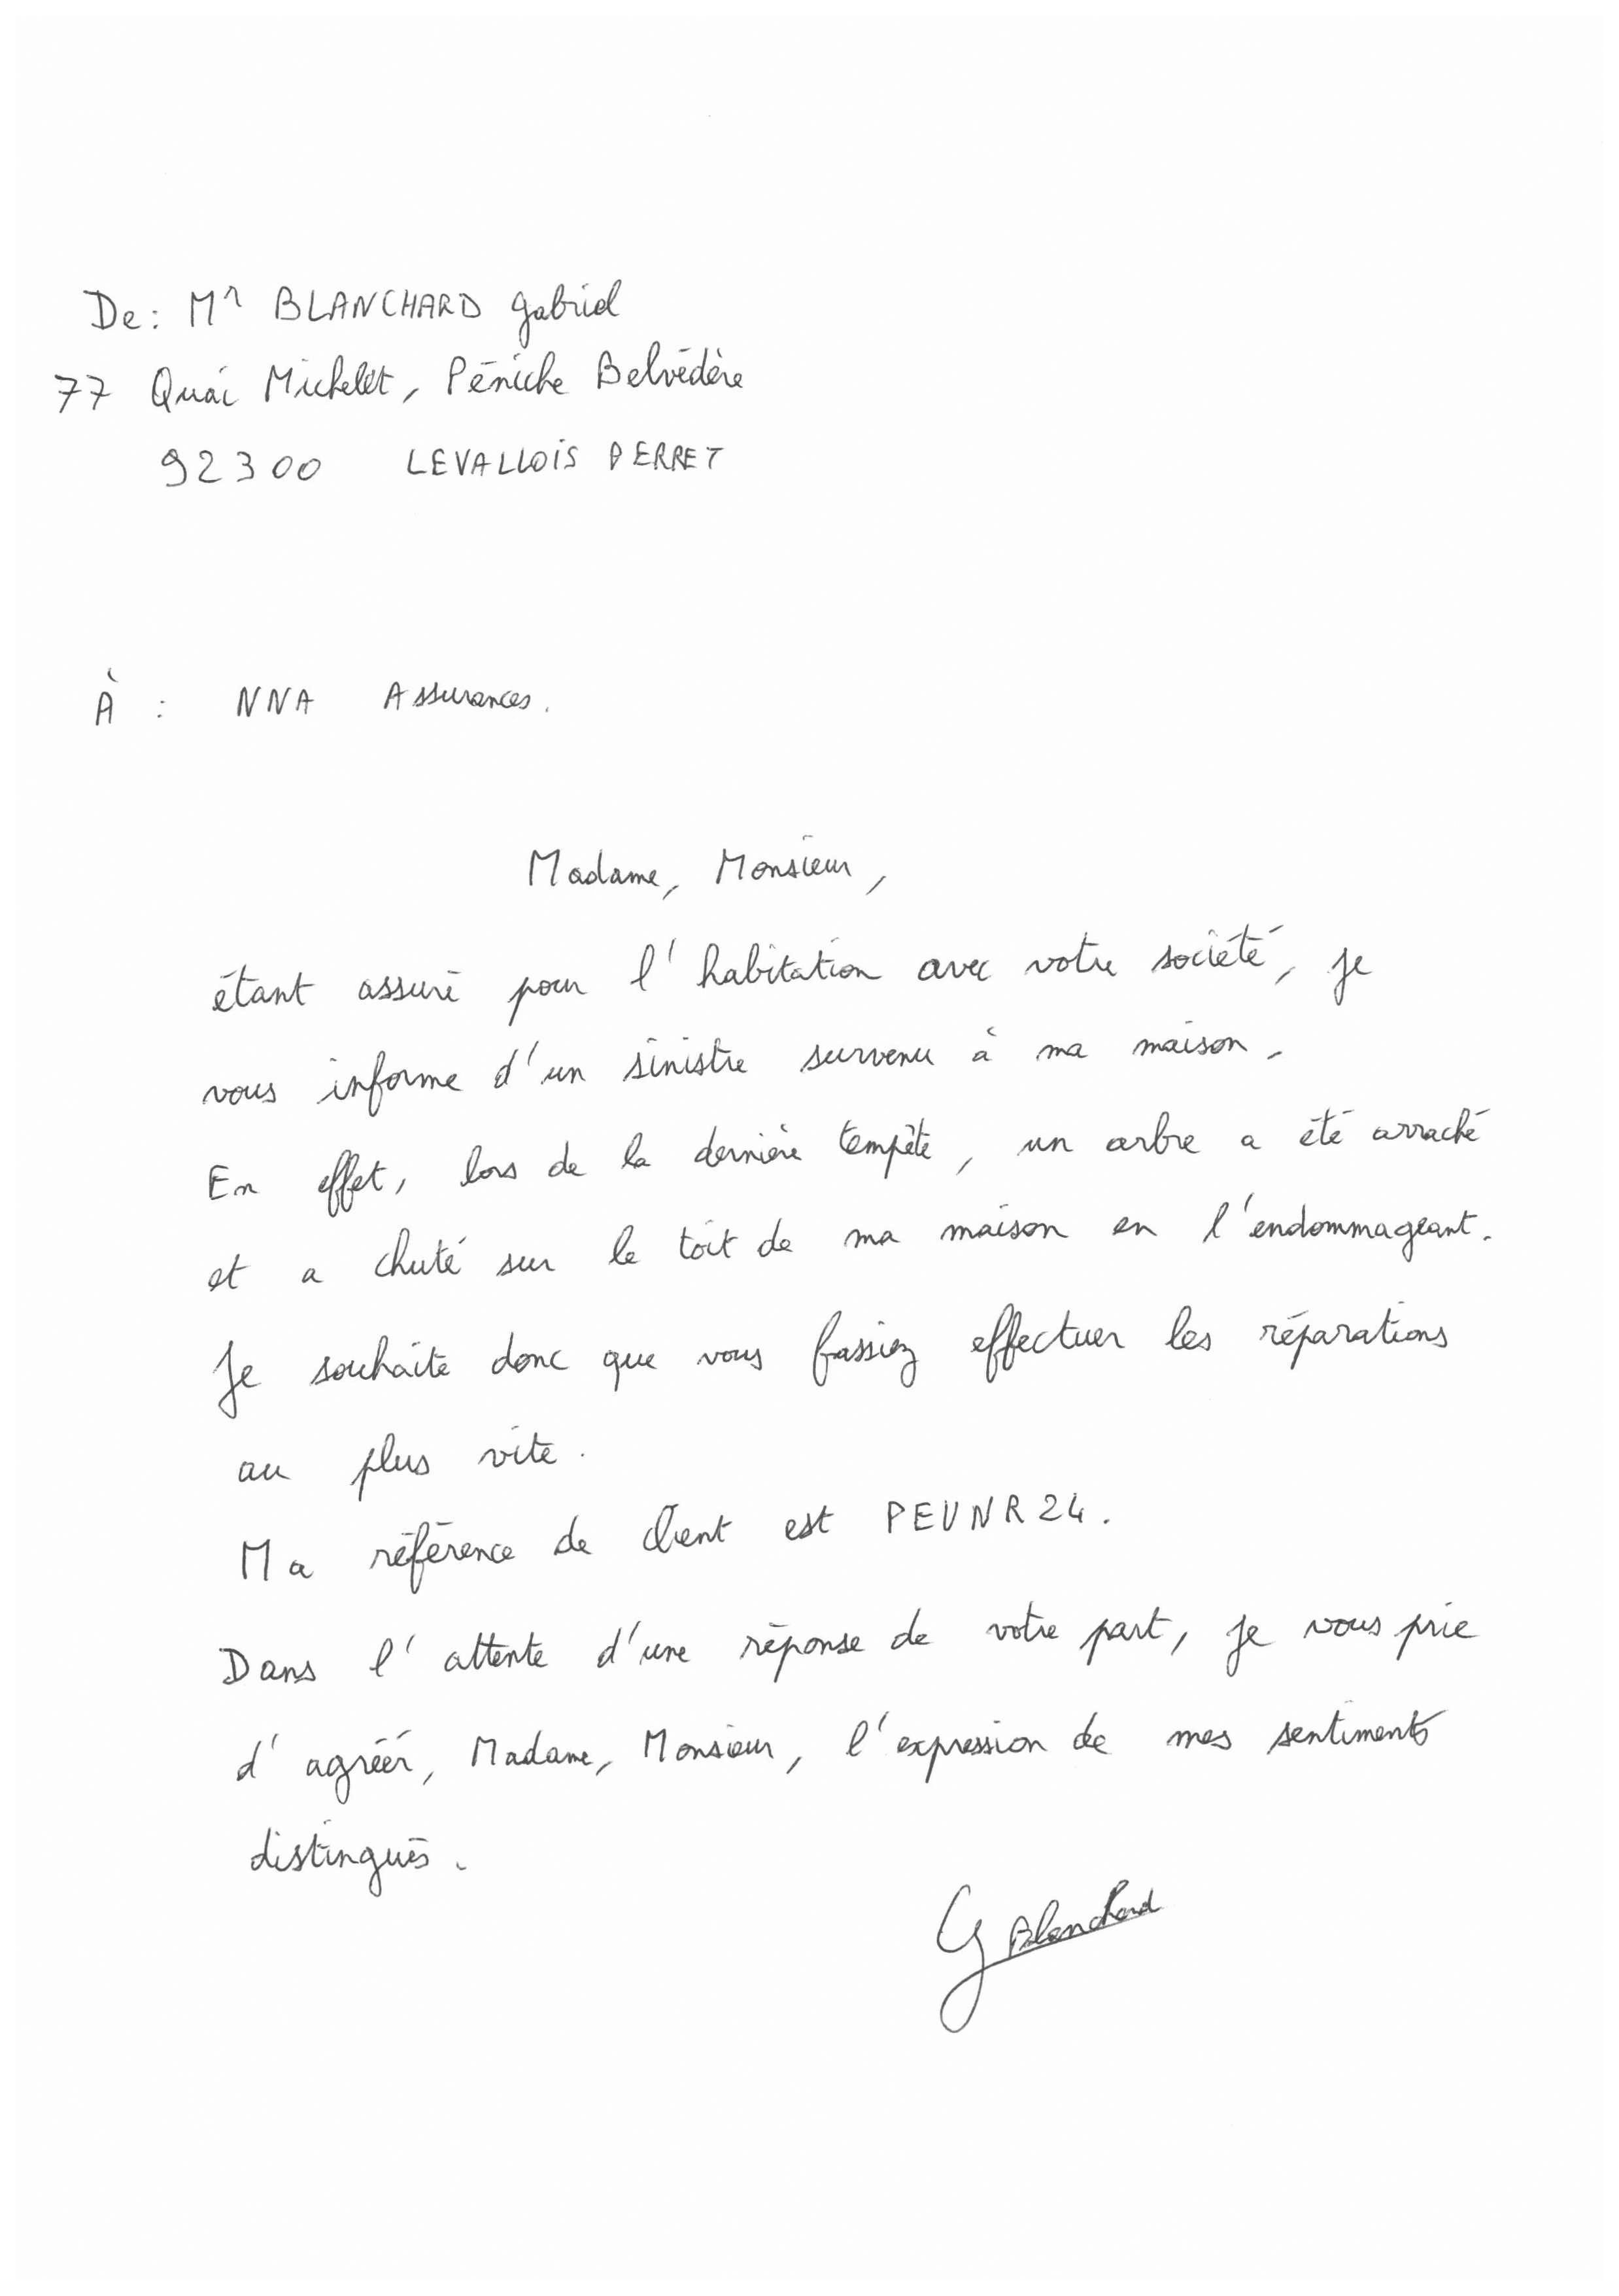 De : Mr BLANCHARD Gabriel
77 Quai Michelet, Péniche Belvédère
92300 LEVALLOIS PERRET
À : NNA Assurances.
Madame, Monsieur,
étant assuré pour l'habitation avec votre société, je
vous informe d'un sinistre survenu à ma maison.
En effet, lors de la dernière tempête, un arbre a été arraché
et a chuté sur le toit de ma maison en l'endommageant.
Je souhaite donc que vous fassiez effectuer les réparations
au plus vite.
Ma référence de client est PEUNR24.
Dans l'attente d'une réponse de votre part, je vous prie
d'agréer, Madame, Monsieur, l'expression de mes sentiments
distingués.
G Blanchard